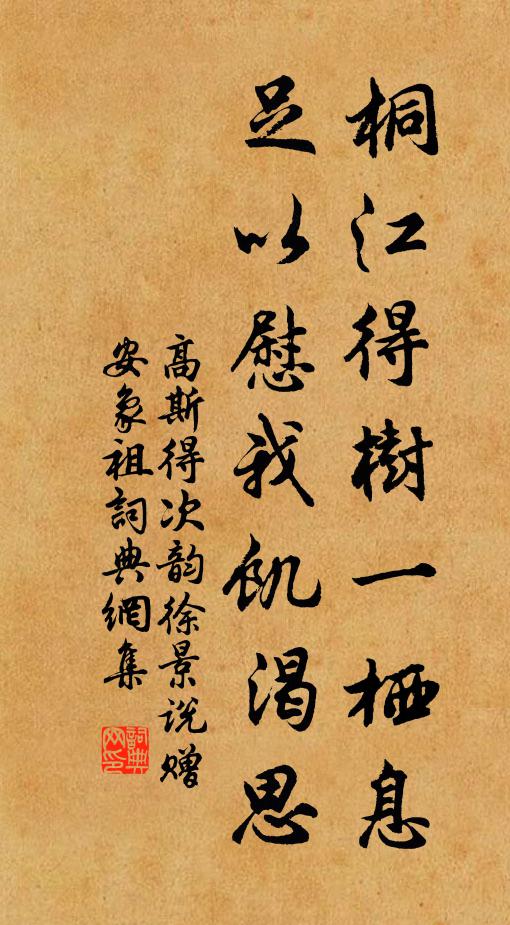 桐江得樹一栖息
足以慰我飢渴思
高斯得次韵徐景说赠
安象祖詞典網集
詞典
网印